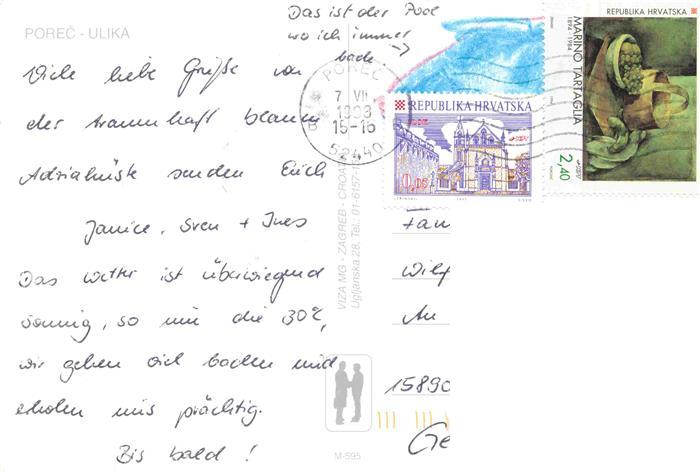 POREČ - ULIKA
Das ist der Pool
wo ich immer
bade
Viele liebe Grüße von
der traumhaft blauen
Adriaküste senden Euch
Janice, Sven + Ines
Das Wetter ist überwiegend
sonnig, so um die 30°,
wir gehen viel baden und
erholen uns prächtig.
Bis bald!
POREČ
7 VII
1998
15-16
52440
REPUBLIKA HRVATSKA
0,05
REPUBLIKA HRVATSKA
MARINO TARTAGLIA
1894 - 1984
2,40
VIZA MG - ZAGREB - CROA
Ugljanska 28, Tel. 01-6157-1
Fam
Wilf
An
15890
Ge
M-595